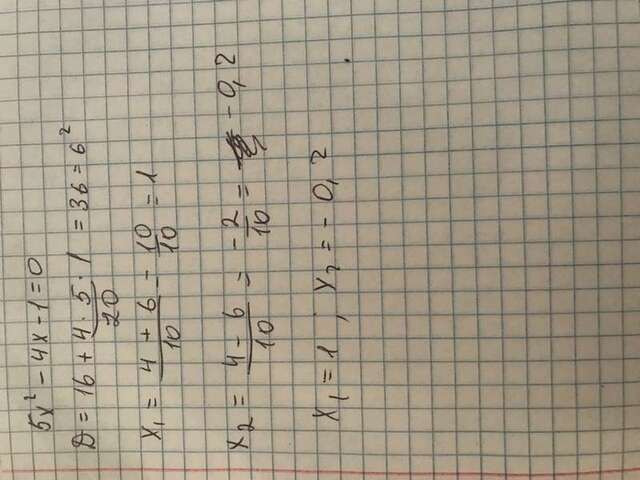 5x² - 4x - 1 = 0
D = 16 + 4 · 5 · 1 = 36 = 6²
20
x₁ = 4 + 6 / 10 - 10 / 10 = 1
x₂ = 4 - 6 / 10 = - 2 / 10 = - 0,2
x₁ = 1 ; x₂ = - 0,2